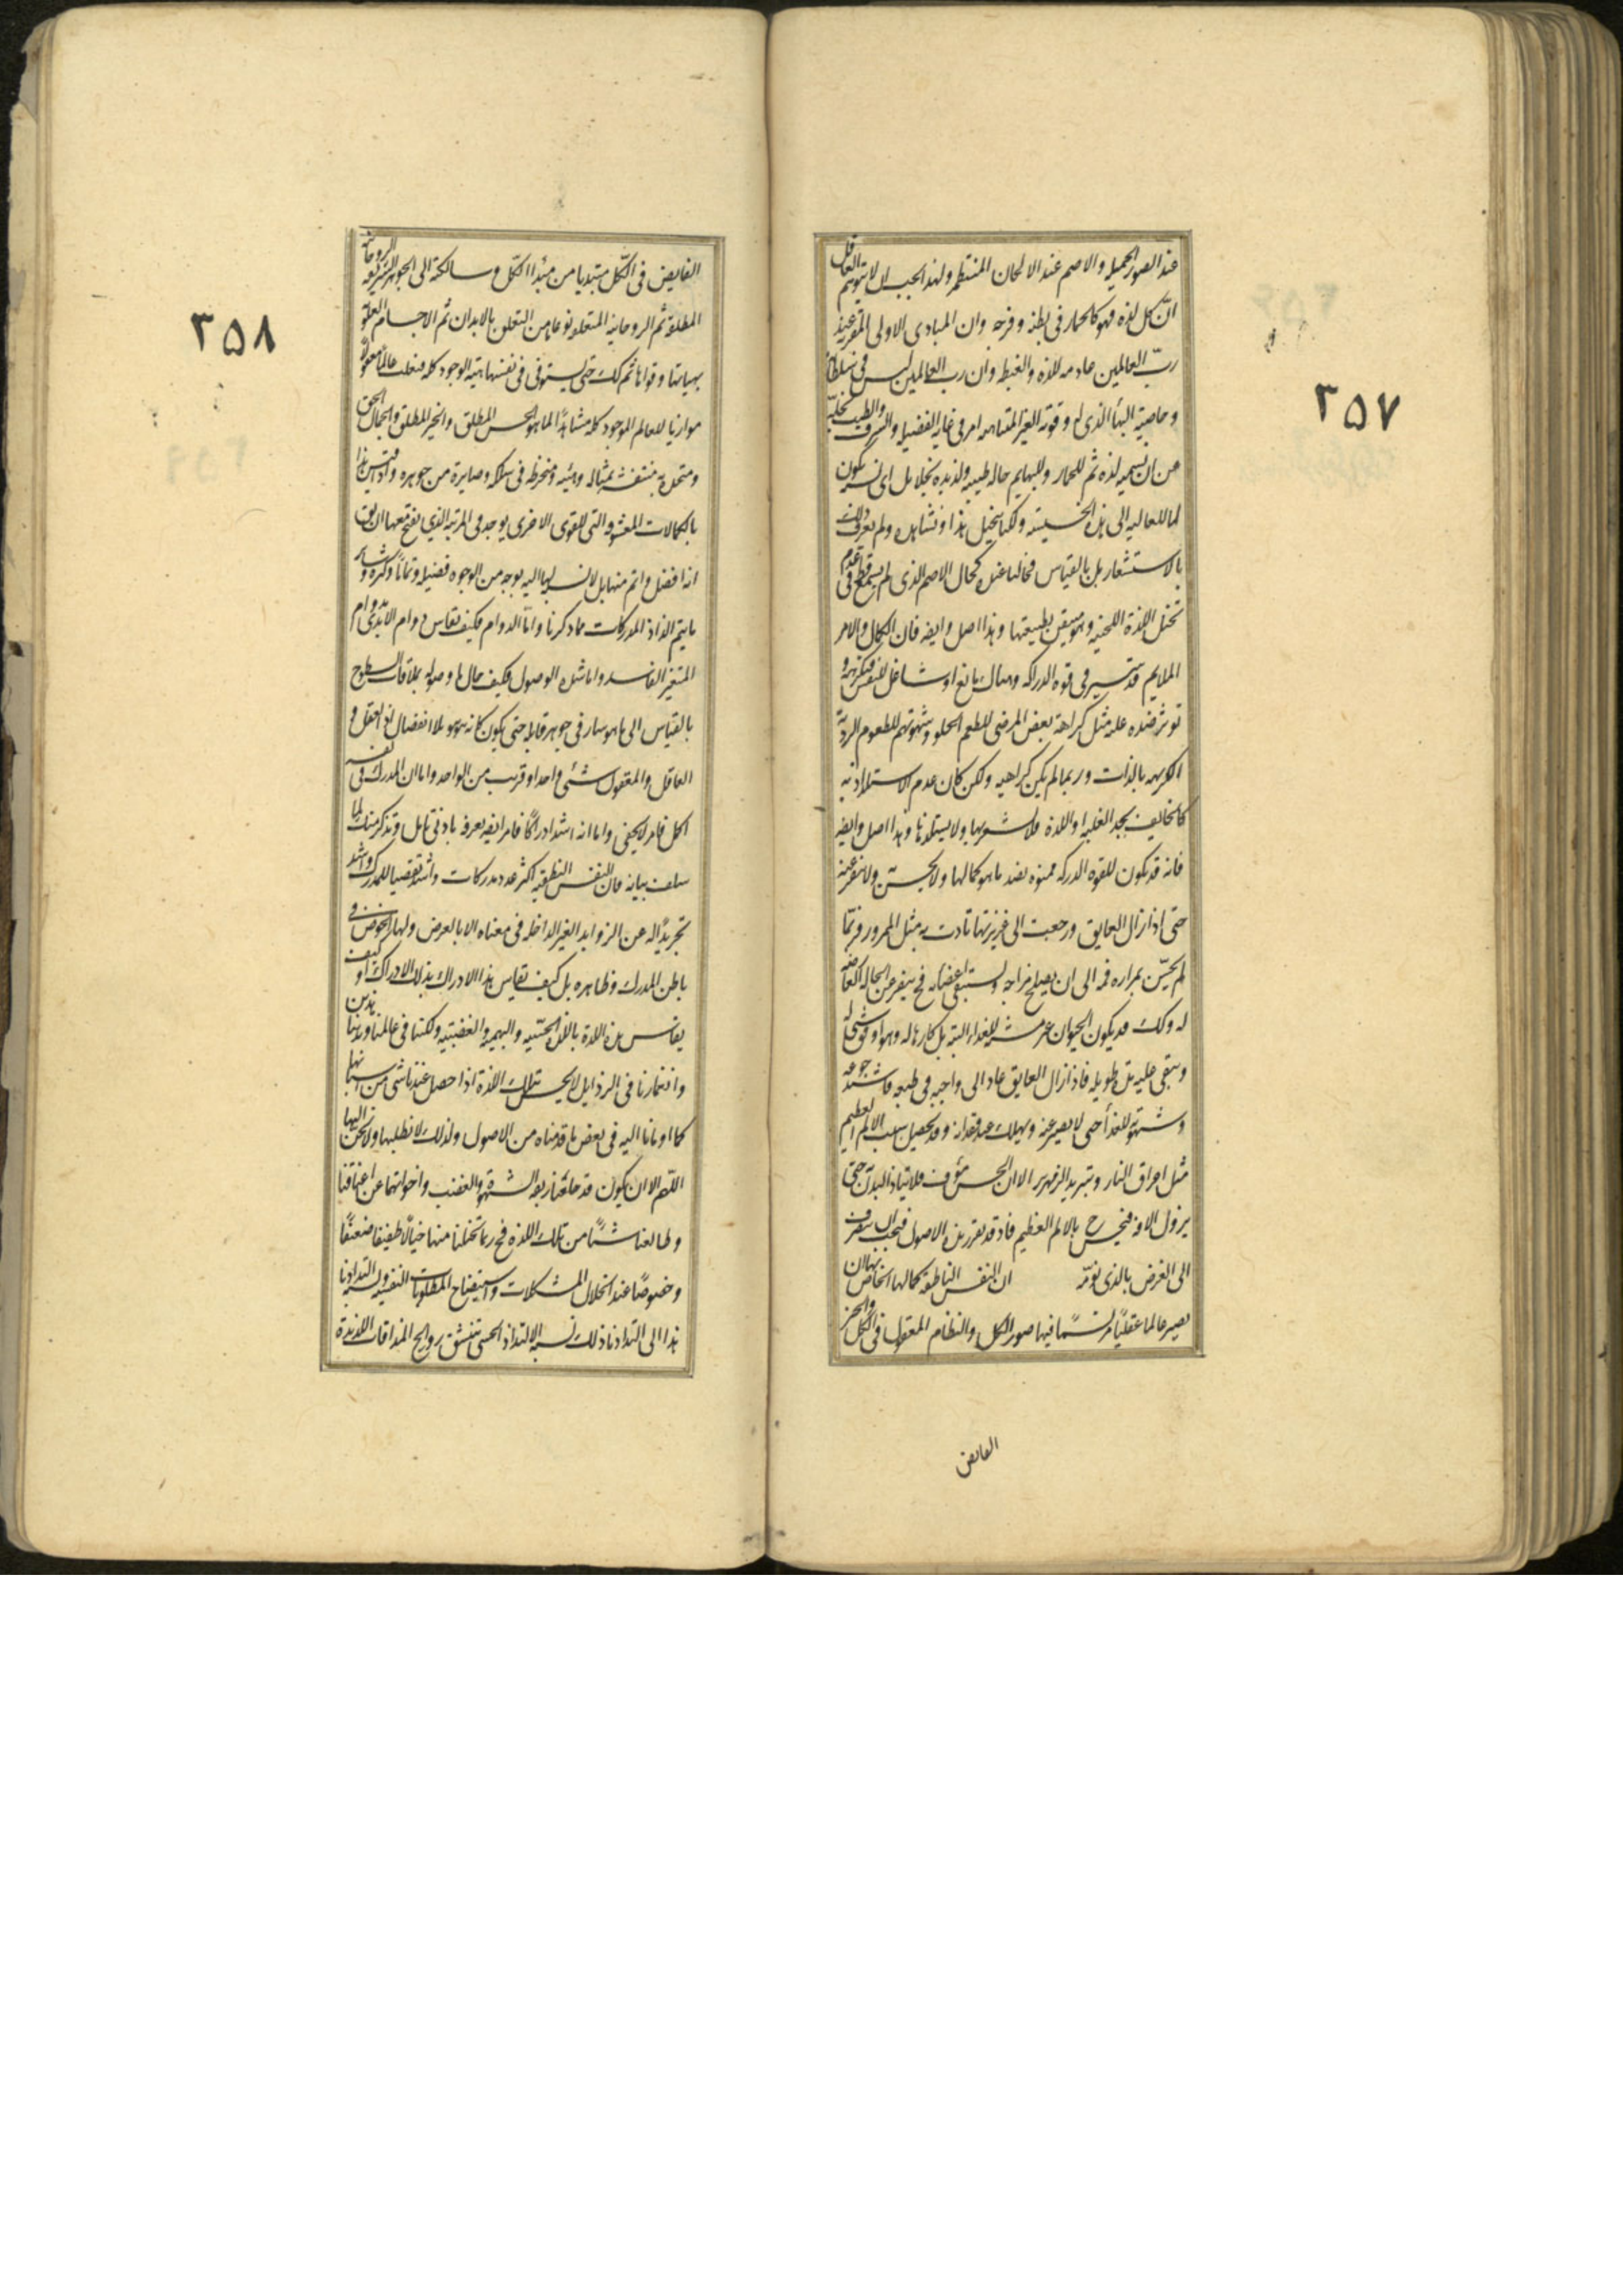 عند الصور الجميله والاصم عند الالحان المنتظمه ولهذا يجب ان لا يتوهم العاقل
ان كل لذه فهو كما للحمار فى بطنه وفرجه وان المبادى الاولى المقربة عند
رب العالمين عادمه للذه والغبطه وان رب العالمين ليس فى سلطانه
وخاصيته البهاء الذى له وقوته الغير المتناهيه امر فى غايه الفضيله والشرف والطيب نجله
من ان نسميه لذه ثم للحمار وللبهايم حاله طيبه ولذيذه كلا بل اى نسبه يكون
لما للعاليه الى هذه الخسيسه ولكنا نتخيل هذا ونشاهده ولم نعرف ذلك
بالاستشعار بل بالقياس فحالنا عنده كحال الاصم الذى لم يسمع قط فى عدم
تخيل اللذة اللحنيه وهو متيقن بطيبتها وهذا اصل وايضه فان الكمال والامر
الملايم قد تتيسر فى قوه الدراكه وهناك مانع او شاغل للنفس فتكرهه و
توثر ضده عليه مثل كراهة بعض المرضى للطعم الحلو وشهوتهم للطعوم الردية
الكريهه بالذات وربما لم يكن كراهيه ولكن كان عدم الاستلذاذ به
كالخايف يجد الغلبه او اللذة فلا يشعر بها ولا يستلذها وهذا اصل وايضه
فانه قد يكون للقوه الدراكه ممنوه بضد ما هو كمالها ولا يحس به ولا تنفر عنه
حتى اذا زال العايق ورجعت الى غريزتها تاذت به مثل الممرور فربما
لم يحس بمراره فمه الى ان يصلح مزاجه ويستنقى اعضاؤه فح ينفر عن الحاله العارضه
له وكك قد يكون الحيوان غير مشته للغذاء البته بل كارها له وهو اوفق شى له
ويبقى عليه مدة طويله فاذا زال العايق عاد الى واجبه فى طبعه فاشتد جوعه
وشهوته للغذا حتى لا يصبر عنه ويهلك عند فقدانه وقد يحصل سبب الالم العظيم
مثل احراق النار وتبريد الزمهرير الا ان الحس مؤف فلا يتاذ البدن به حتى
يزول الافه فيحس ح بالالم العظيم فاذ قد تقررت هذه الاصول فيجب ان ننصرف
الى الغرض بالذى نؤمه ان النفس الناطقه كمالها الخاص بها ان
يصير عالما عقليًا مرتسمًا فيها صور الكل والنظام المعقول فى الكل والخير
الفايض
٣٥٧
الفايض فى الكل مبتديا من مبدا الكل وسالكة الى الجواهر الشريفه الروحانيه
المطلقة ثم الروحانيه المتعلقه نوعا ما من التعلق بالابدان ثم الاجسام العلويه
بهياتها وقواها ثم كك حتى يستوفى فى نفسها هيئة الوجود كله فتنقلب عالما معقولا
موازيا للعالم الموجود كله مشاهدًا لما هو الحسن المطلق والخير المطلق والجمال الحق
ومتحدة به منتقشه بمثاله وهيئته ومنخرطه فى سلكه وصايرة من جوهره واذا قيس هذا
بالكمالات المعشوقه التى للقوى الاخرى يوجد فى المرتبه الذى يقبح معها ان يق
انه افضل واتم منها بل لا نسبه لها اليه بوجه من الوجوه فضيله وتمامًا وكثرة وساير
ما يتم الذاذ المدركات مما ذكرنا واما الدوام فكيف يقاس دوام الابدى بدوام
المتغير الفاسد واما شده الوصول فكيف حال ما وصوله بملاقات السطوح
بالقياس الى ما هو سار فى جوهر قابله حتى يكون كانه هو هو بلا انفصال اذ العقل و
العاقل والمعقول شئى واحد او قريب من الواحد واما ان المدرك فى نفسه
اكمل فامر لا يخفى واما انه اشد ادراكًا فامر ايضه يعرف بادنى تامل وتذكر منك لما
سلف بيانه فان النفس النطقيه اكثر عدد مدركات واشد تقصيا للمدرك واشد
تجريدًا له عن الزوايد الغير الداخله فى معناه الا بالعرض ولها الخوض فى
باطن المدرك وظاهره بل كيف يقاس هذا الادراك بذلك الادراك او كيف
يقاس هذه اللذة باللذة الحسيه والبهيميه والغضبيه ولكنا فى عالمنا وبدننا هذين
وانغمارنا فى الرذايل لا نحس بتلك اللذة اذا حصل عندنا شى من اسبابها
كما اومانا اليه فى بعض ما قدمناه من الاصول ولذلك لا نطلبها ولا نحن اليها
اللهم الا ان يكون قد خلعنا ربقه الشهوة والغضب واخواتهما عن اعناقنا
وطالعنا شيئًا من تلك اللذه فح ربما تخيلنا منها خيالًا طفيفا ضعيفًا
وخصوصًا عند انحلال المشكلات واستيضاح المطلوبات النفسيه ونسبة التذاذنا
هذا الى التذاذنا ذلك نسبه الالتذاذ الحسى بتنشق روايح المذاقات اللذيذة
٣٥٨